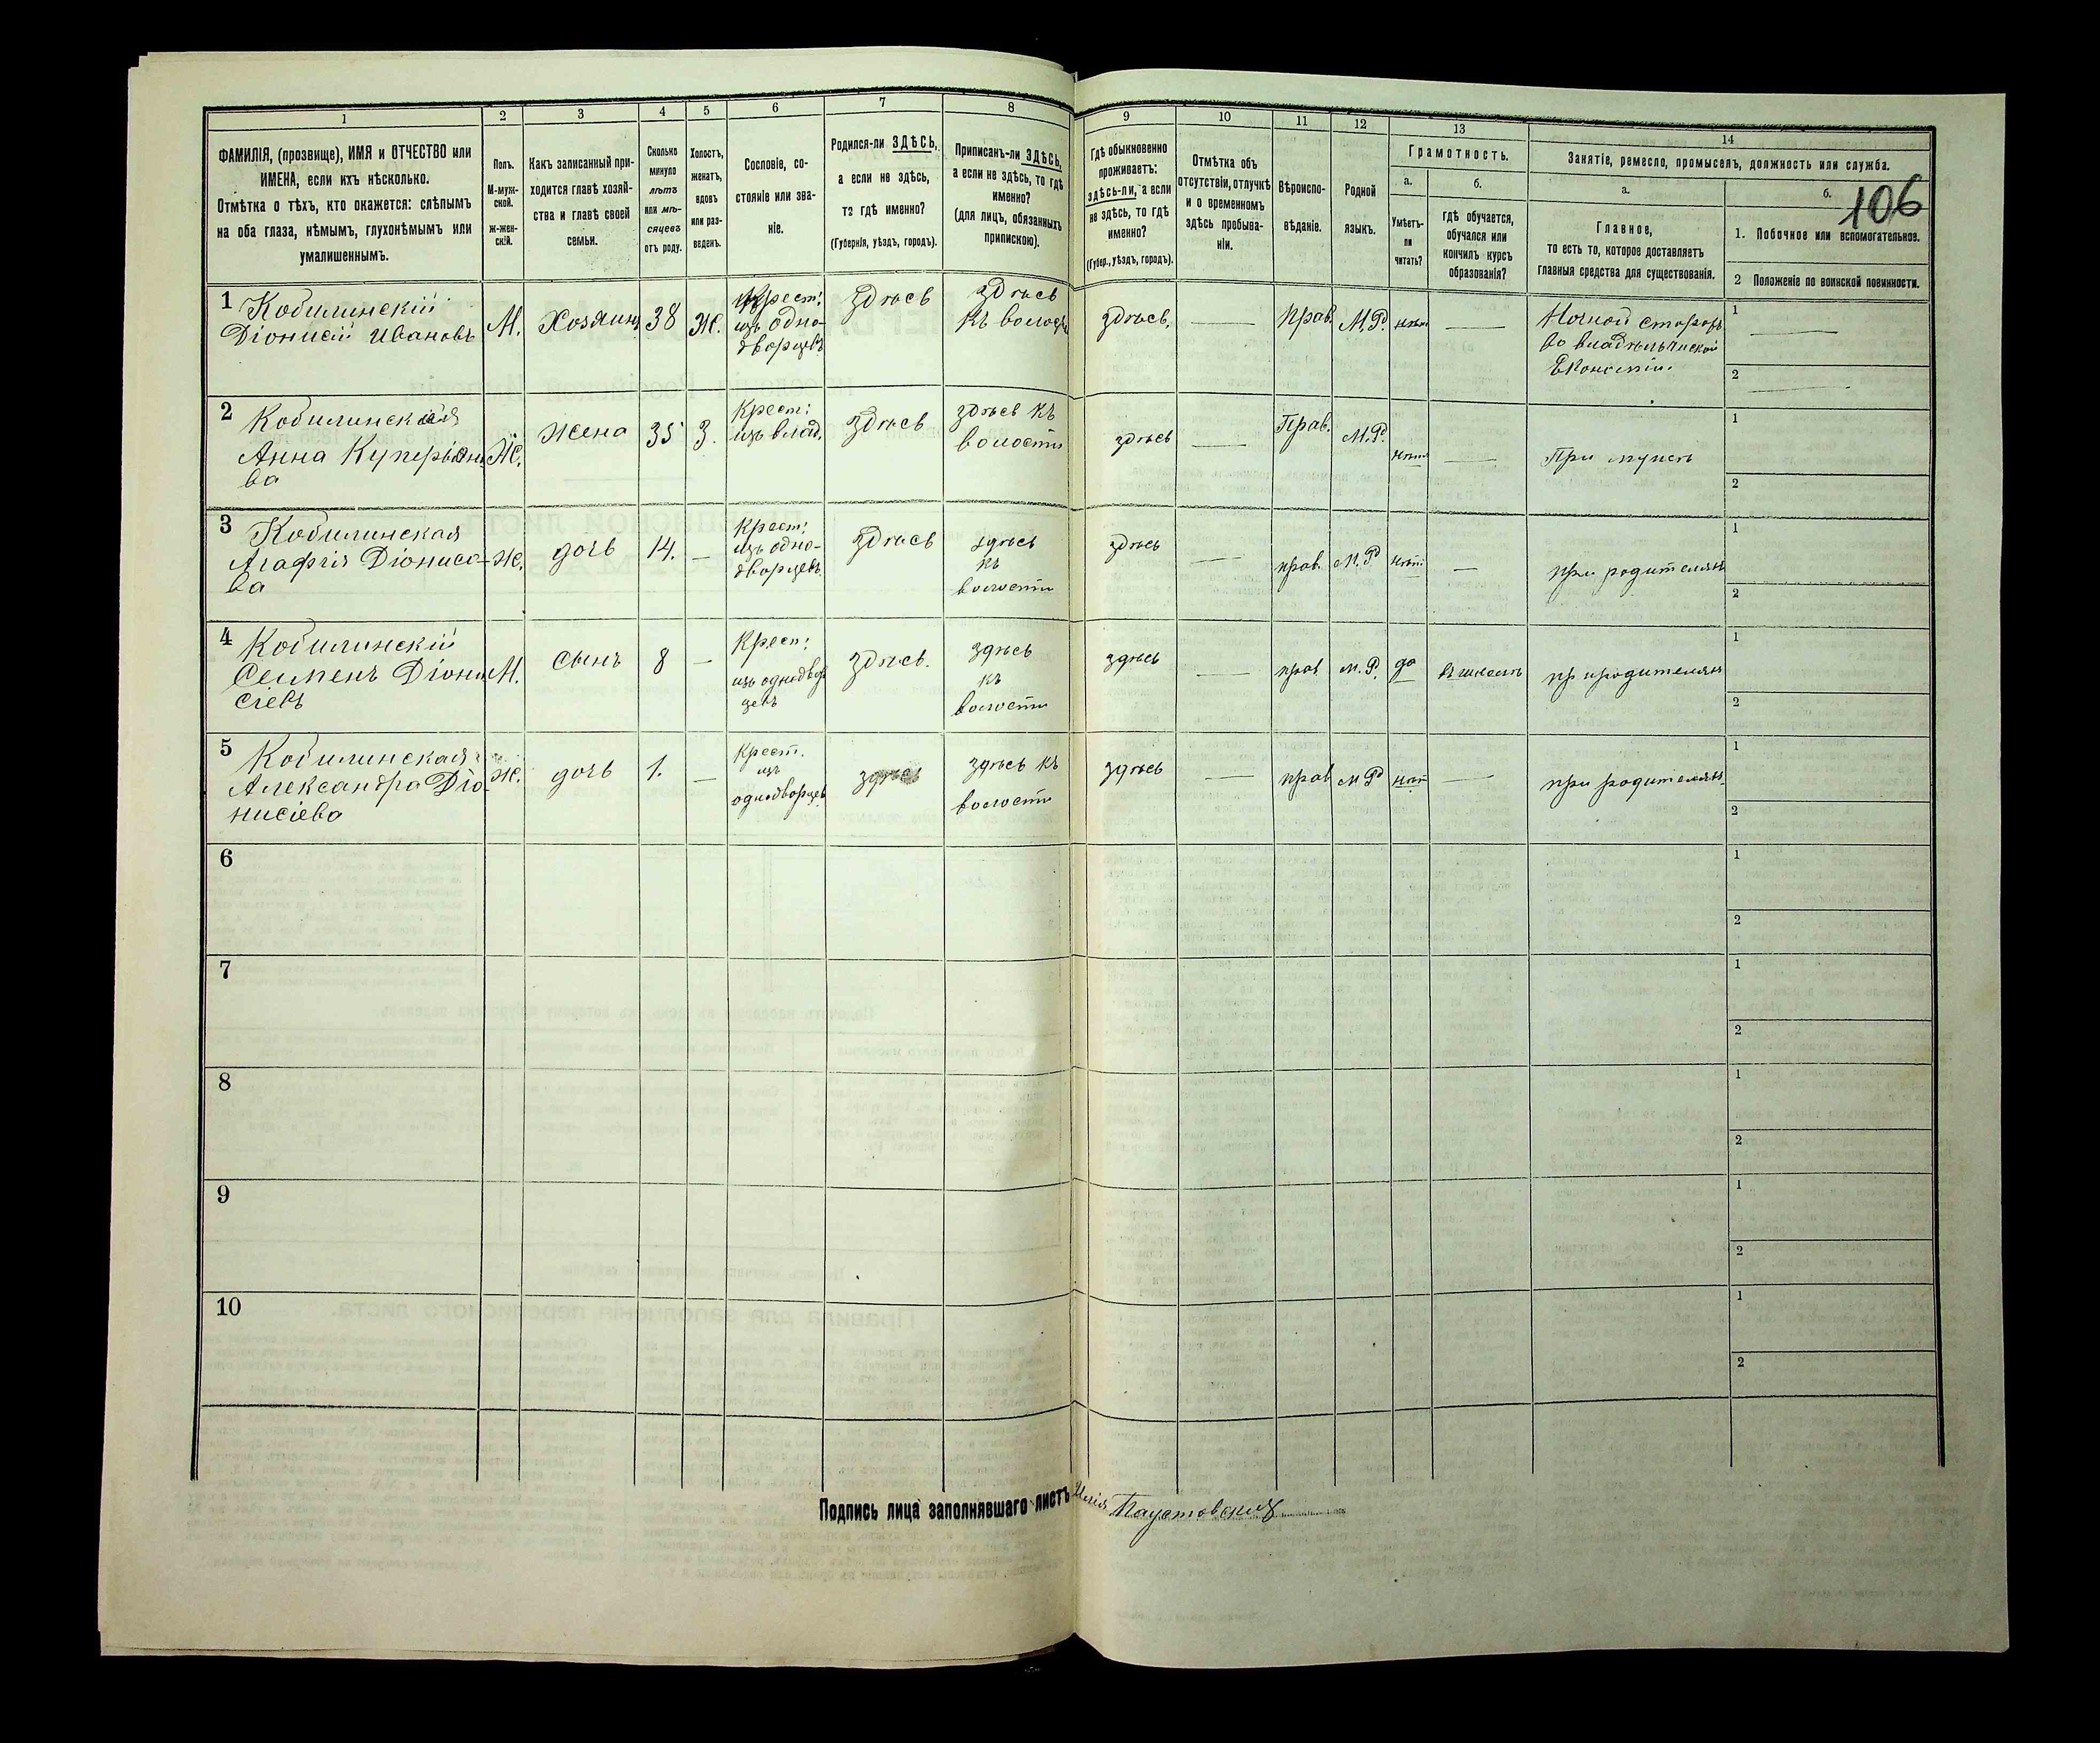 106
1 2 3 4 5 6 7 8 9 10 11 12 13 14
ФАМИЛІЯ, (прозвище), ИМЯ и ОТЧЕСТВО или
ИМЕНА, если ихъ нѣсколько.
Отмѣтка о тѣхъ, кто окажется: слѣпымъ
на оба глаза, нѣмымъ, глухонѣмымъ или
умалишеннымъ.
Полъ.
М-муж-
ской.
ж-жен-
скій.
Какъ записанный при-
ходится главѣ хозяй-
ства и главѣ своей
семьи.
Сколько
минуло
лѣтъ
или мѣ-
сяцевъ
отъ роду.
Холостъ,
женатъ,
вдовъ
или раз-
веденъ.
Сословіе, со-
стояніе или зва-
ніе.
Родился-ли ЗДѢСЬ,
а если не здѣсь,
то гдѣ именно?
(Губернія, уѣздъ, городъ).
Приписанъ-ли ЗДѢСЬ,
а если не здѣсь, то гдѣ
именно?
(для лицъ, обязанныхъ
припискою).
Гдѣ обыкновенно
проживаетъ:
здѣсь-ли, а если
не здѣсь, то гдѣ
именно?
(Губер., уѣздъ, городъ).
Отмѣтка объ
отсутствіи, отлучкѣ
и о временномъ
здѣсь пребыва-
ніи.
Вѣроиспо-
вѣданіе.
Родной
языкъ.
Грамотность.
а.
Умѣетъ-
ли
читать?
б.
гдѣ обучается,
обучался или
кончилъ курсъ
образованія?
Занятіе, ремесло, промыселъ, должность или служба.
а.
Главное,
то есть то, которое доставляетъ
главныя средства для существованія.
б.
1. Побочное или вспомогательное.
2 Положеніе по воинской повинности.
1 Кобилинскій
Діонисій Ивановъ
М.
Хозяинъ
38
Ж.
Крест:
изъ одно-
дворцевъ
здѣсь
здѣсь
къ волости
здѣсь,
Прав.
М.Р.
нѣтъ
Ночной сторожъ
во владѣльческой
Економіи.
1
2
2 Кобилинская
Анна Куперіяно
ва
Ж.
жена
35
З.
Крест:
изъ влад.
здѣсь
здѣсь къ
волости
здѣсь
Прав.
М.Р.
нѣтъ
При мужѣ
1
2
3 Кобилинская
Агафія Діонисо-
ва
Ж.
дочь
14.
Крест:
изъ одно-
дворцевъ
здѣсь
здѣсь
къ
волости
здѣсь
прав.
М.Р
нѣтъ
при родителяхъ
1
2
4 Кобилинскій
Семенъ Діони
сіевъ
М.
сынъ
8
Крест:
изъ однодвор
цевъ
здѣсь.
здѣсь
къ
волости
здѣсь
прав
М.Р.
да
въ школѣ
при родителяхъ
1
2
5 Кобилинская
Александра Діо-
нисіева
Ж.
дочь
1.
Крест.
изъ
однодворцевъ
здѣсь
здѣсь къ
волости
здѣсь
прав
М Р
нѣтъ
при родителяхъ
1
2
6
1
2
7
1
2
8
1
2
9
1
2
10
1
2
Подпись лица заполнявшаго листъ Паустовскій